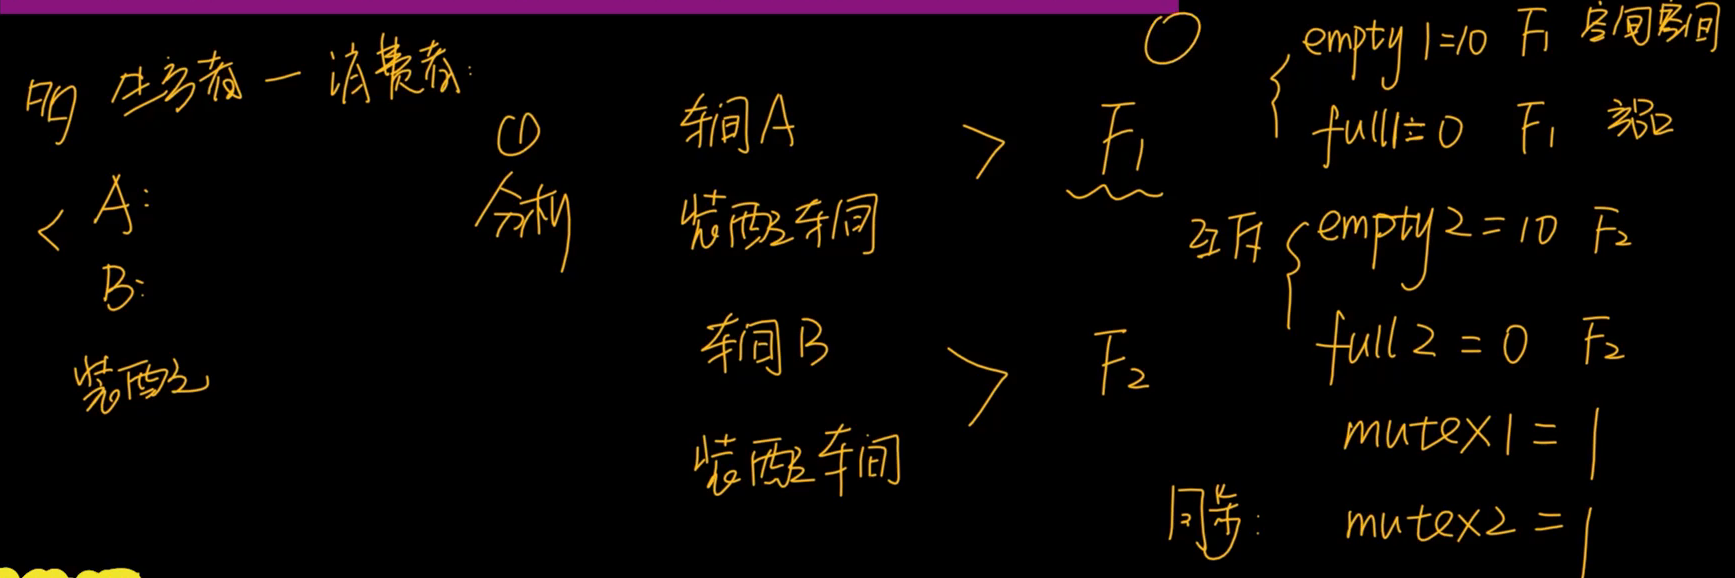 生产者一消费者:
A:
B:
装配
①
分析
车间A
装配车间
车间B
装配车间
F1
F2
empty1=10 F1 空间
full1=0 F1
互斥
empty2=10 F2
full2=0 F2
mutex1=1
同步:
mutex2=1